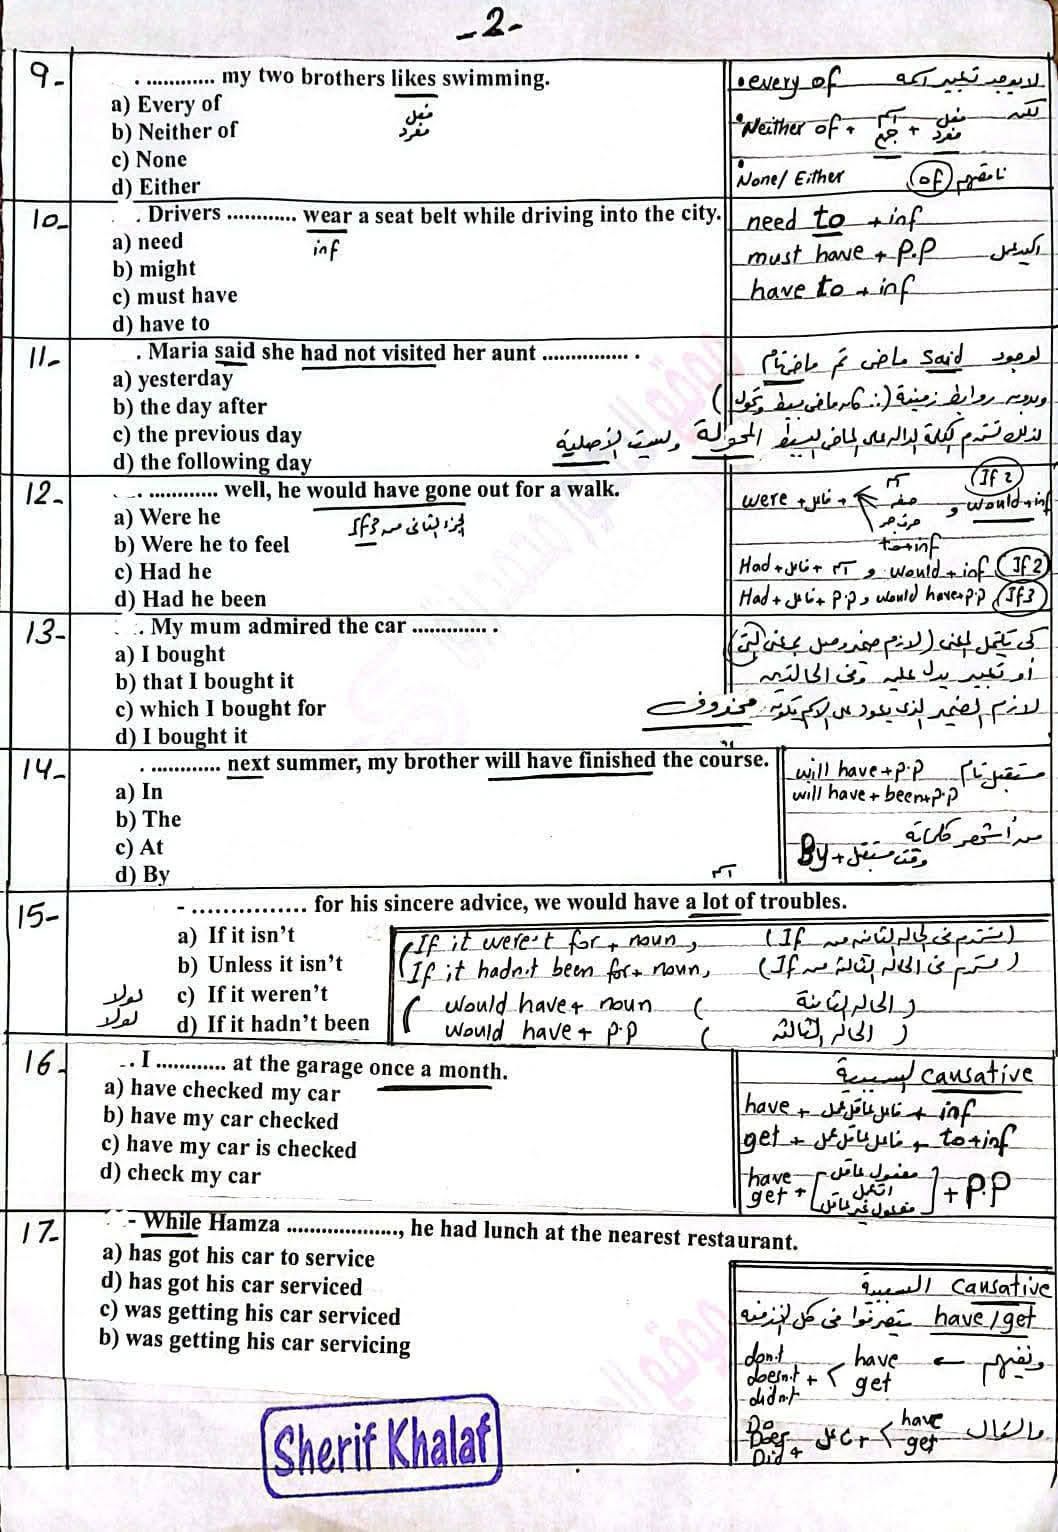 -2-
9-
. ............ my two brothers likes swimming.
فعل
مفرد
a) Every of
b) Neither of
c) None
d) Either
• every of لا يوجد تعبير اسمه
• Neither of + اسم جمع + فعل مفرد لكن
• None/ Either ناقصهم (of)
10-
. Drivers ............ wear a seat belt while driving into the city.
inf
a) need
b) might
c) must have
d) have to
need to + inf
must have + P.P
have to + inf
11-
. Maria said she had not visited her aunt ............... .
a) yesterday
b) the day after
c) the previous day
d) the following day
لوجود said ماضى ثم ماضى تام
وبدون روابط زمنية (∴ كان ماضى بسيط وتحول)
لذلك نستخدم الكلمة الدالة على الماضى البسيط المحولة وليست الأصلية
12-
. ............ well, he would have gone out for a walk.
الجزء الثانى من If3
a) Were he
b) Were he to feel
c) Had he
d) Had he been
(If 2)
were + فاعل +
اسم
صفة
حرف جر
to+inf
و would+inf
Had + فاعل + اسم و would + inf (If 2)
Had + فاعل + P.P و would have+P.P (If3)
13-
. My mum admired the car ............. .
a) I bought
b) that I bought it
c) which I bought for
d) I bought it
كى يكتمل المعنى (لازم ضمير وصل بمعنى التى)
أو تعبير يدل عليه وفى الحالتين
لازم الضمير الذى يعود على الاسم يكون محذوف
14-
. ............ next summer, my brother will have finished the course.
a) In
b) The
c) At
d) By
will have + P.P مستقبل تام
will have + been+P.P
من أشهر كلماته
By + وقت مستقبل
15-
اسم
- ................ for his sincere advice, we would have a lot of troubles.
a) If it isn't
b) Unless it isn't
c) If it weren't
d) If it hadn't been
لولا
لولا
If it were't for + noun, (تستخدم فى الحالة الثانية من If)
If it hadn't been for + noun, (تستخدم فى الحالة الثالثة من If)
would have + noun (الحالة الثانية)
would have + P.P (الحالة الثالثة)
16-
. I ............ at the garage once a month.
a) have checked my car
b) have my car checked
c) have my car is checked
d) check my car
causative السببية
have + فاعل عاقل عمل + inf
get + فاعل عاقل عمل + to+inf
have
get + [مفعول عاقل اتعمل مفعول غير عاقل] + P.P
17-
- While Hamza ...................., he had lunch at the nearest restaurant.
a) has got his car to service
d) has got his car serviced
c) was getting his car serviced
b) was getting his car servicing
causative السببية
have/get يتصرفوا فى كل الأزمنة
ونفيهم ←
don't
doesn't + < have
get
didn't
والسؤال
Do
Does + فاعل + < have
get
Did
Sherif Khalaf